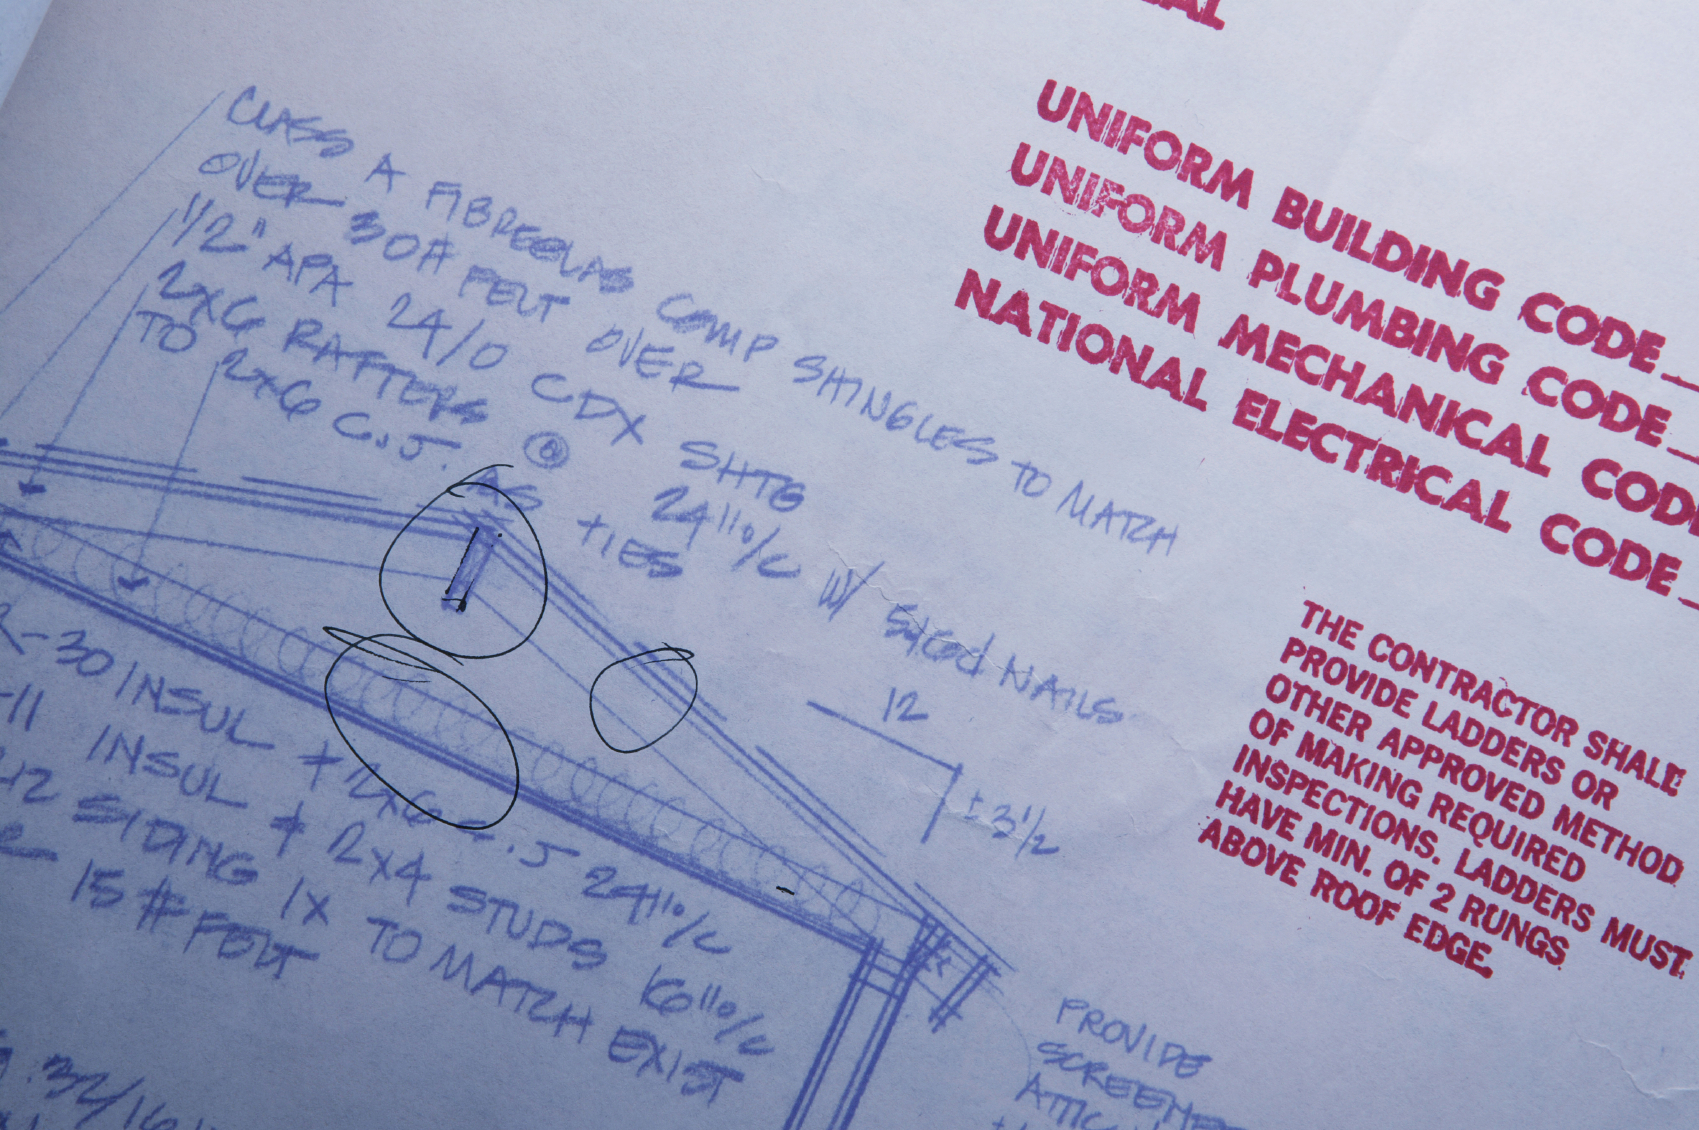 CLASS A FIBREGLAS COMP SHINGLES TO MATCH
OVER 30# FELT OVER
1/2" APA 24/0 CDX SHTG
2X6 RAFTERS @ 24"o/c W/ 5/16d NAILS
TO 2X6 C.J. AS TIES
12
±3½
R-30 INSUL + 2X6 C.J 24"o/c
-11 INSUL + 2X4 STUDS 16"o/c
SIDING 1X TO MATCH EXIST
15 # FELT
.32/16
PROVIDE
SCREENE
ATTIC
AL
UNIFORM BUILDING CODE_
UNIFORM PLUMBING CODE_
UNIFORM MECHANICAL CODE
NATIONAL ELECTRICAL CODE_
THE CONTRACTOR SHALL
PROVIDE LADDERS OR
OTHER APPROVED METHOD
OF MAKING REQUIRED
INSPECTIONS. LADDERS MUST
HAVE MIN. OF 2 RUNGS
ABOVE ROOF EDGE.